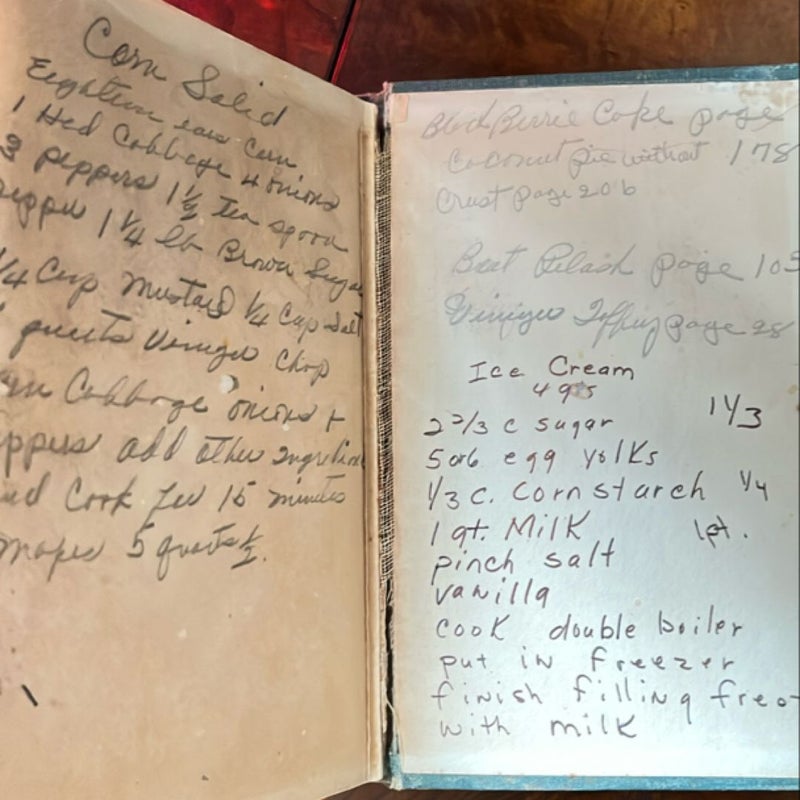 Corn Salid
Eighteen ears corn
1 Hed Cabbage 4 onions
3 peppers 1 1/2 tea spoon
1 1/4 lb Brown Sugar
1/4 Cup Mustard 1/4 Cup Salt
quarts Viniger Chop
Cabbage onions +
add other Ingredien
Cook for 15 minutes
makes 5 quarts
Black Berrie Cake page
Coconut pie without 178
Crust page 206
Beet Relash page 105
Viniger page 28
Ice Cream
4 qts
2 2/3 c sugar 1 1/3
5 or 6 egg yolks
1/3 c. Cornstarch 1/4
1 qt. Milk 1 pt.
pinch salt
vanilla
cook double boiler
put in freezer
finish filling
with milk